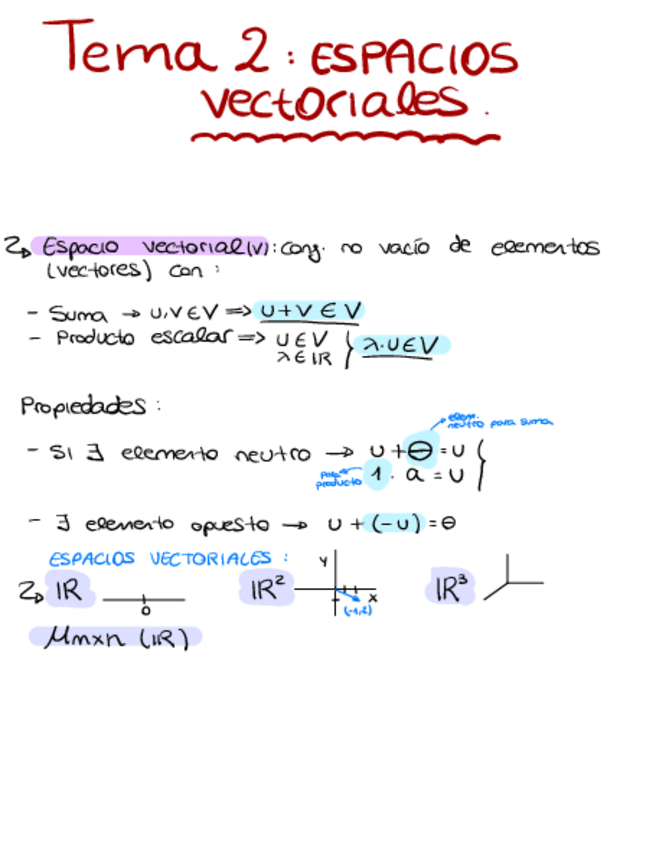 Tema 2: ESPACIOS
vectoriales.
Espacio vectorial(v): conj. no vacío de elementos
(vectores) con:
- Suma → u,v ∈ V => u+v ∈ V
- Producto escalar => u ∈ V
λ ∈ IR } λ·u ∈ V
Propiedades:
elem.
neutro para suma
- Si ∃ elemento neutro → u + ⊖ = u
para
producto
1 · a = u
- ∃ elemento opuesto → u + (-u) = ⊖
ESPACIOS VECTORIALES:
IR
0
IR²
y
x
(-1,2)
IR³
Mmxn (IR)